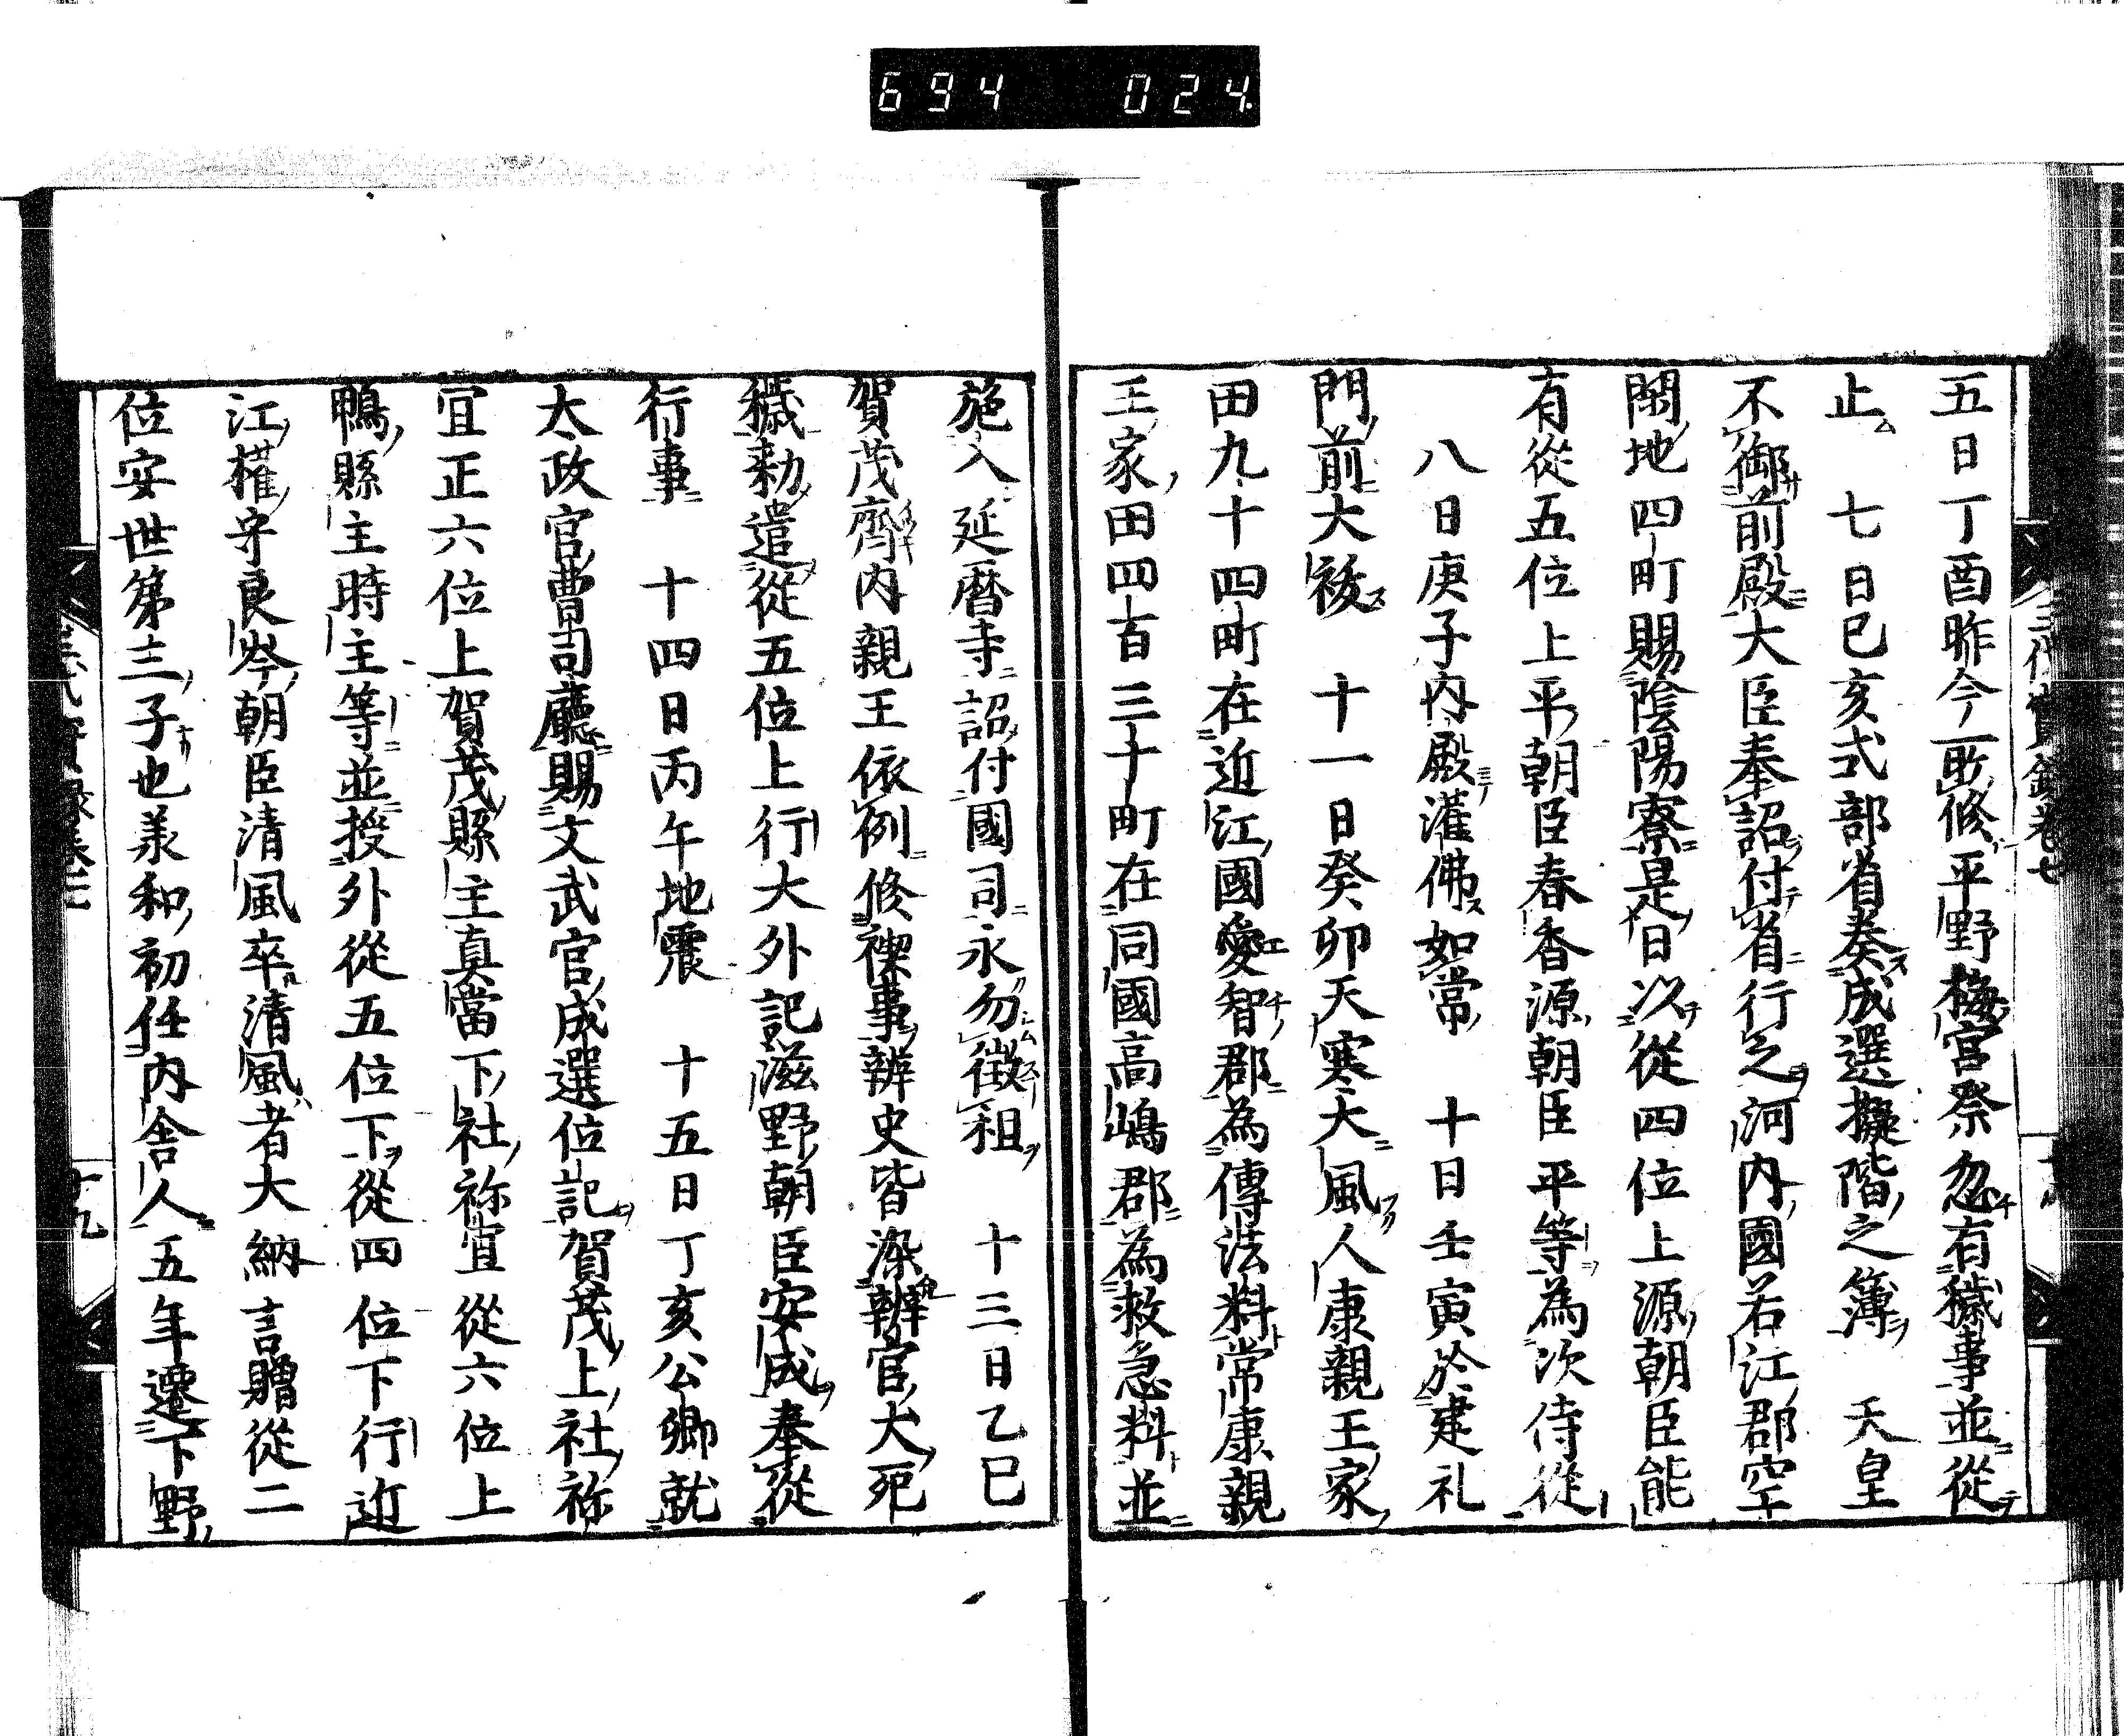 694 024
五日丁酉昨今一𠩄修平野梅宮祭忽有穢事並從
止　七日己亥式部省奏成選擬階之簿　天皇
不御前殿大臣奉詔付省行之河内國若江郡空
閑地四町賜陰陽寮是日以從四位上源朝臣能
有從五位上平朝臣春香源朝臣平等為次侍從
八日庚子内殿灌佛如常　十日壬寅於建礼
門前大祓　十一日癸卯天寒大風人康親王家
田九十四町在近江國愛智郡為傳法料常康親
王家田四百三十町在同國高嶋郡為救急料並
施入延暦寺詔付國司永勿徴租　十三日乙巳
賀茂齊内親王依例修禊事辨史皆染辨官犬死
穢勑遣從五位上行大外記滋野朝臣安成奉從
行事　十四日丙午地震　十五日丁亥公卿就
太政官曹司廳賜文武官成選位記賀茂上社祢
冝正六位上賀茂縣主真當下社祢冝從六位上
鴨縣主時主等並授外從五位下從四位下行近
江權守良岑朝臣清風卒清風者大納言贈從二
位安世第三子也羕和初任内舎人五年遷下野
三代實録卷七
十九